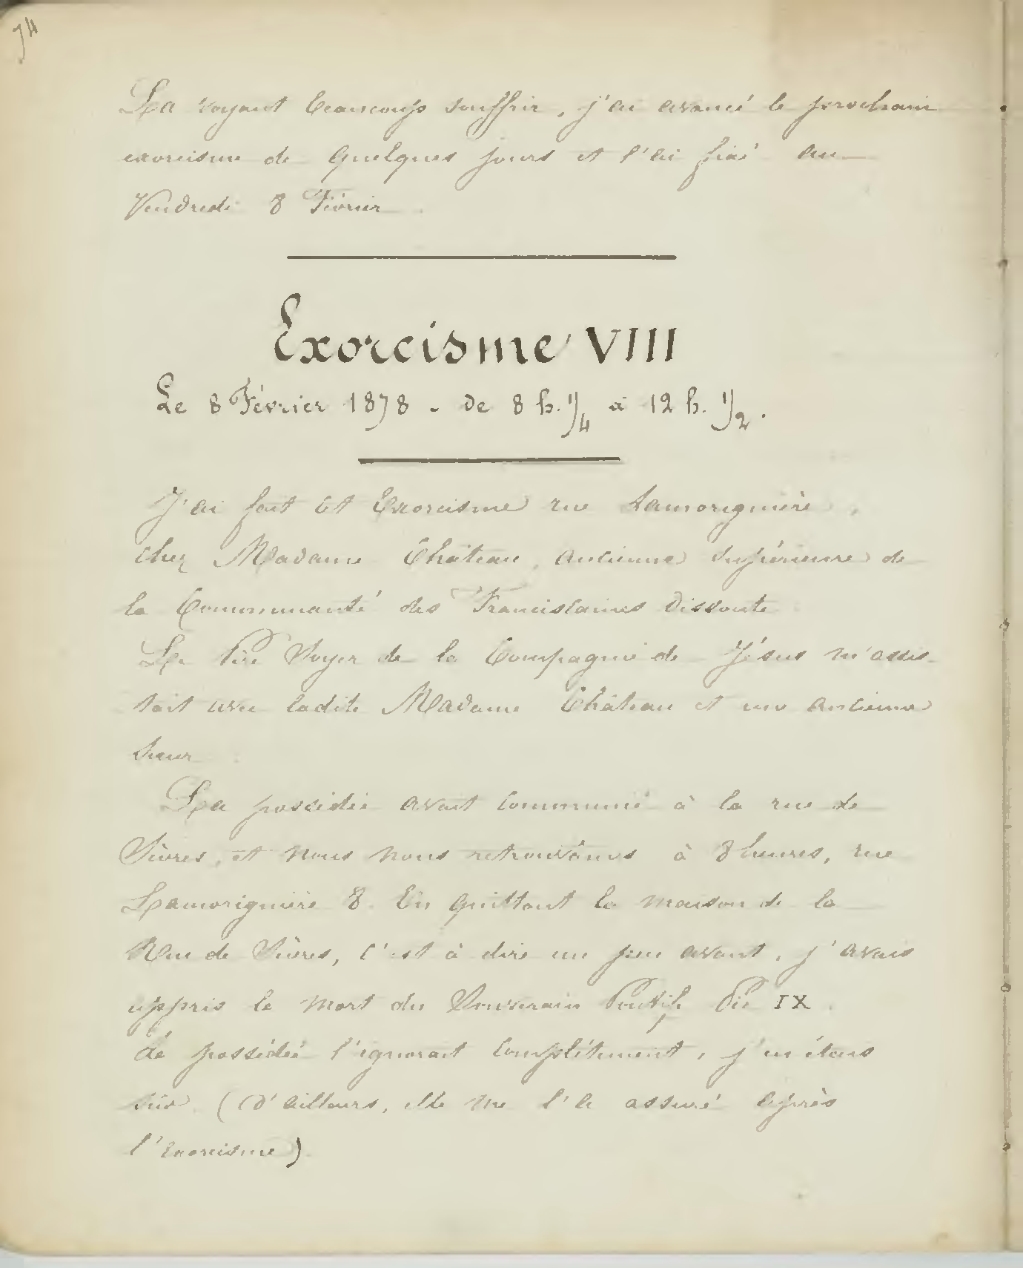 74
La voyant beaucoup souffrir, j'ai avancé le prochain
exorcisme de quelques jours et l'ai fixé au
Vendredi 8 Février.
Exorcisme VIII
Le 8 Février 1878 - de 8 h. 1/4 à 12 h. 1/2.
J'ai fait cet Exorcisme rue Lamorignière,
chez Madame Château, ancienne supérieure de
la Communauté des Franciscaines dissoute.
Le Père Soyer de la Compagnie de Jésus m'assis-
tait avec ladite Madame Château et une ancienne
sœur.
La possédée avait communié à la rue de
Sèvres, et nous nous retrouvâmes à 8 heures, rue
Lamorignière 8. En quittant la maison de la
Rue de Sèvres, c'est à dire un peu avant, j'avais
appris la mort du Souverain Pontife Pie IX.
La possédée l'ignorait complètement, j'en étais
sûr. (D'ailleurs, elle me l'a assuré après
l'exorcisme).